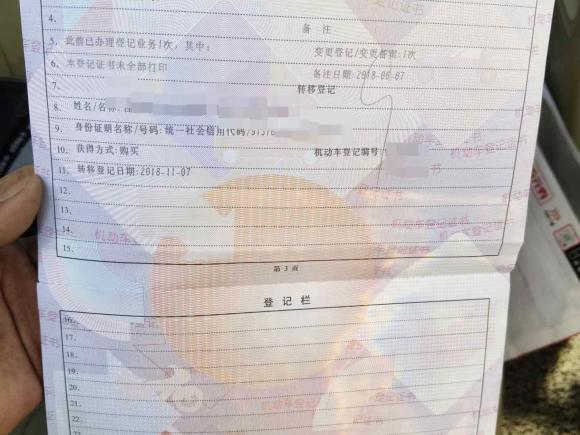 4.
备 注
5. 此前已办理登记业务1次，其中:
变更登记/变更备案:1次
6. 本登记证书未全部打印
备注日期:2018-06-07
7.
转移登记
8. 姓名/名称:
9. 身份证明名称/号码:统一社会信用代码/
10. 获得方式:购买
机动车登记编号:
11. 转移登记日期:2018-11-07
12.
13.
14.
15.
第 3 页
登 记 栏
16.
17.
18.
19.
20.
21.
22.
23.
机动车登记证书